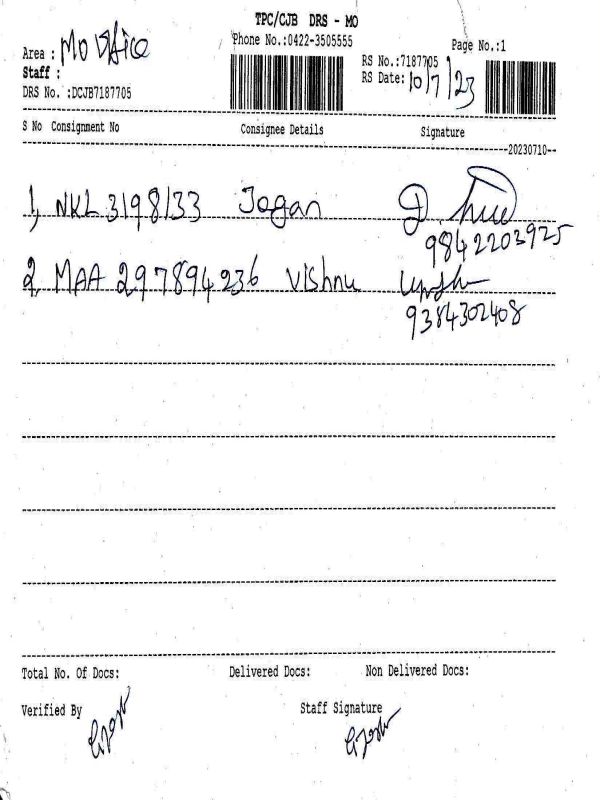 TPC/CJB DRS - MO
Phone No.:0422-3505555
Page No.:1
Area : MO Office
Staff :
RS No.:7187705
RS Date: 10/7/23
DRS No. :DCJB7187705
S No Consignment No Consignee Details Signature
20230710
1, NKL 3198133 Jogan
9842203925
2, MAA 297894236 Vishnu
9384302408
Total No. Of Docs: Delivered Docs: Non Delivered Docs:
Verified By Staff Signature